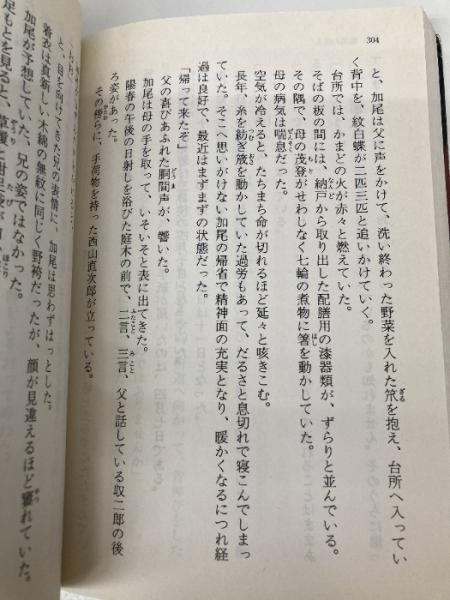 304
と、加尾は父に声をかけて、洗い終わった野菜を入れた笊を抱え、台所へ入ってい
く背中を、紋白蝶が二匹三匹と追いかけていく。
台所では、かまどの火が赤々と燃えていた。
そばの板の間には、納戸から取り出した配膳用の漆器類が、ずらりと並んでいる。
その隅で、母の茂登がせわしなく七輪の煮物に箸を動かしていた。
母の病気は喘息だった。
空気が冷えると、たちまち命が切れるほど延々と咳きこむ。
長年、糸を紡ぎ筬を動かしていた過労もあって、だるさと息切れで寝こんでしまっ
ていた。そこへ思いがけない加尾の帰省で精神面の充実となり、暖かくなるにつれ経
過は良好で、最近はまずまずの状態だった。
「帰って来たぞ」
父の喜びあふれた胴間声が、響いた。
加尾は母の手を取って、いそいそと表に出てきた。
陽春の午後の日射しを浴びた庭木の前で、二言、三言、父と話している収二郎の後
ろ姿があった。
その傍らに、手荷物を持った西山直次郎が立っている。
と、目を向けてきた兄の表情に、加尾は思わずはっとした。
着衣は真新しい木綿の無紋に同じく野袴だったが、顔が見違えるほど窶れていた。
加尾が予想していた、兄の姿ではなかった。
足もとを見ると、草履に紺足袋